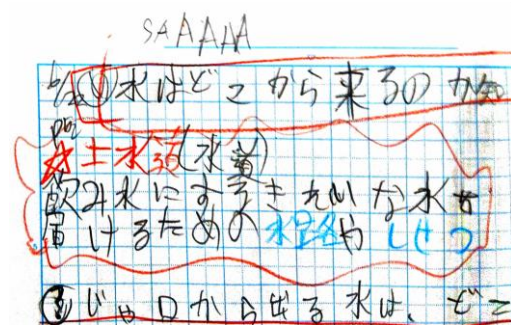 SAAAAA
6/22 水はどこから来るのか
P82
上水道(水道)
飲み水にするきれいな水を
届けるための水路やしせつ
じゃ口から出る水は、どこ